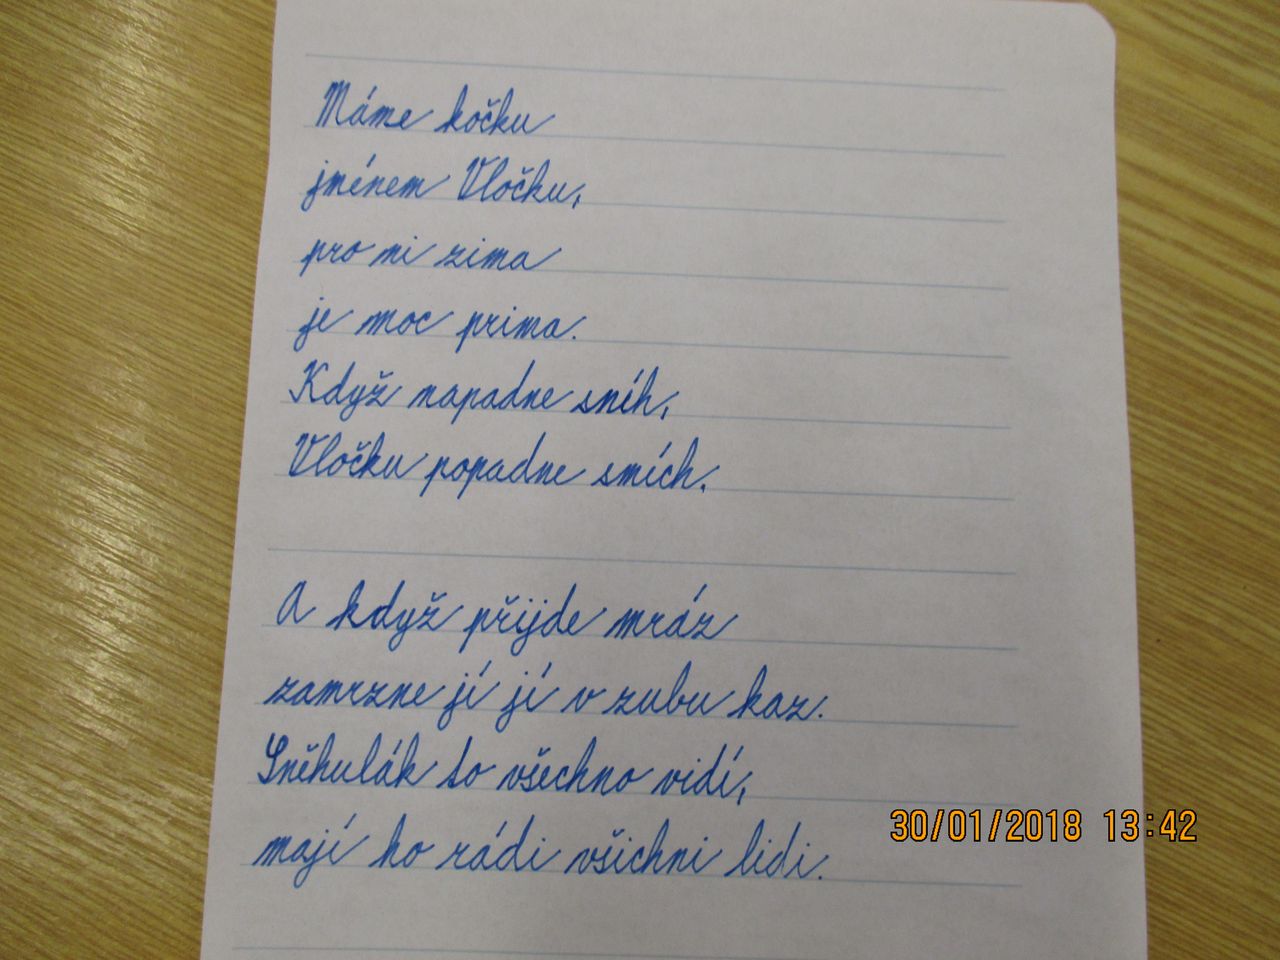 Máme kočku
jménem Vločku,
pro ni zima
je moc prima.
Když napadne sníh,
Vločku popadne smích.
A když přijde mráz
zamrzne jí jí v zubu kaz.
Sněhulák to všechno vidí,
mají ho rádi všichni lidi.
30/01/2018 13:42